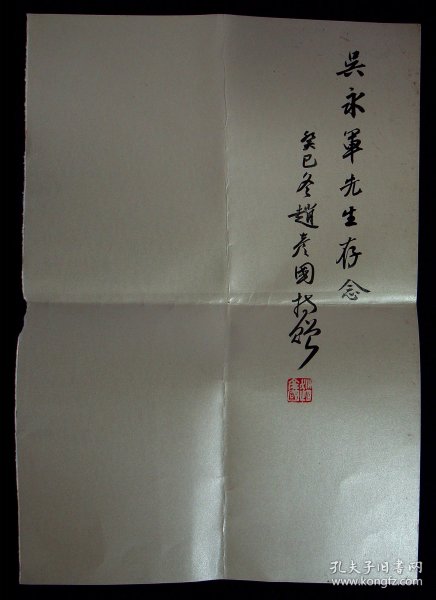 吳永軍先生存念
癸巳冬趙彦國持贈
孔夫子旧书网
www.kongfz.com